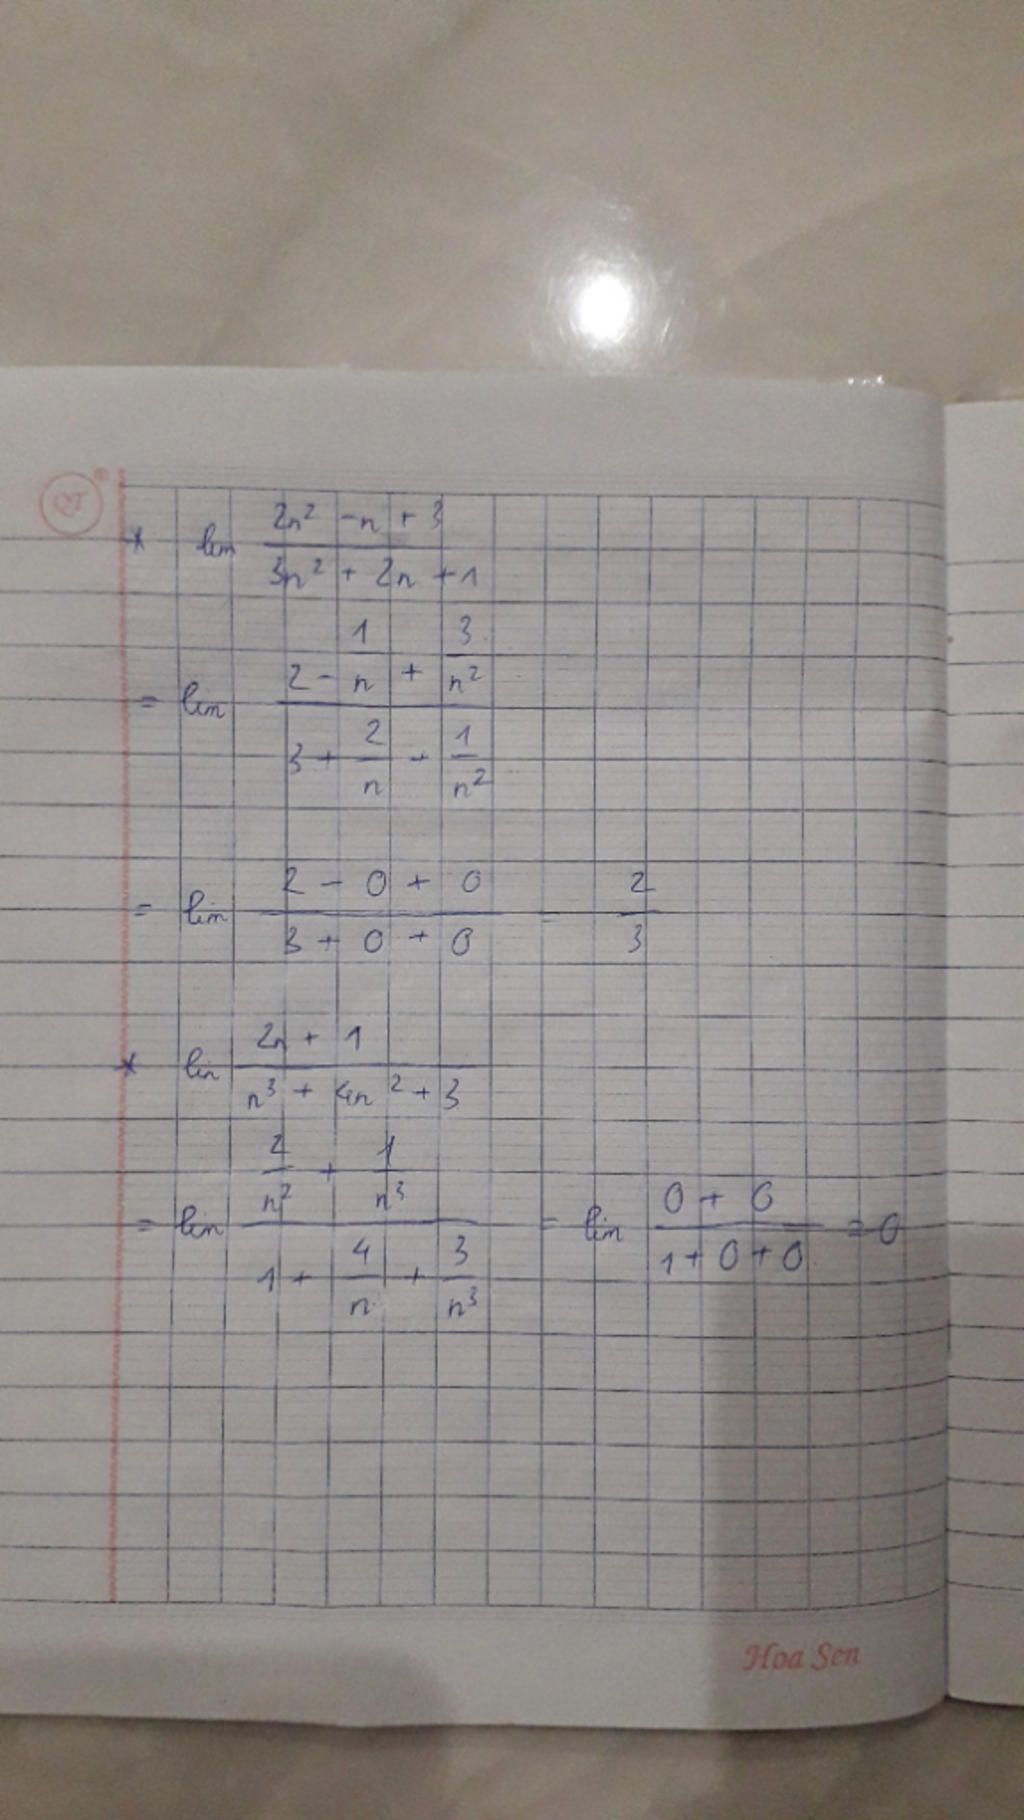 * lim (2n² - n + 3) / (3n² + 2n + 1)
= lim (2 - 1/n + 3/n²) / (3 + 2/n + 1/n²)
= lim (2 - 0 + 0) / (3 + 0 + 0) = 2/3
* lim (2n + 1) / (n³ + 4n² + 3)
= lim (2/n² + 1/n³) / (1 + 4/n + 3/n³) = lim (0 + 0) / (1 + 0 + 0) = 0
Hoa Sen